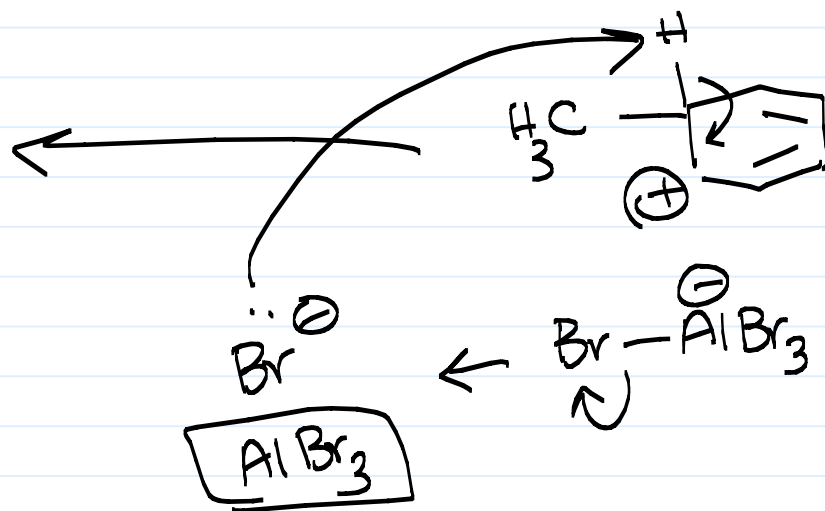 H
H3C
⊕
⊖
Br ⊖
Br—AlBr3
AlBr3